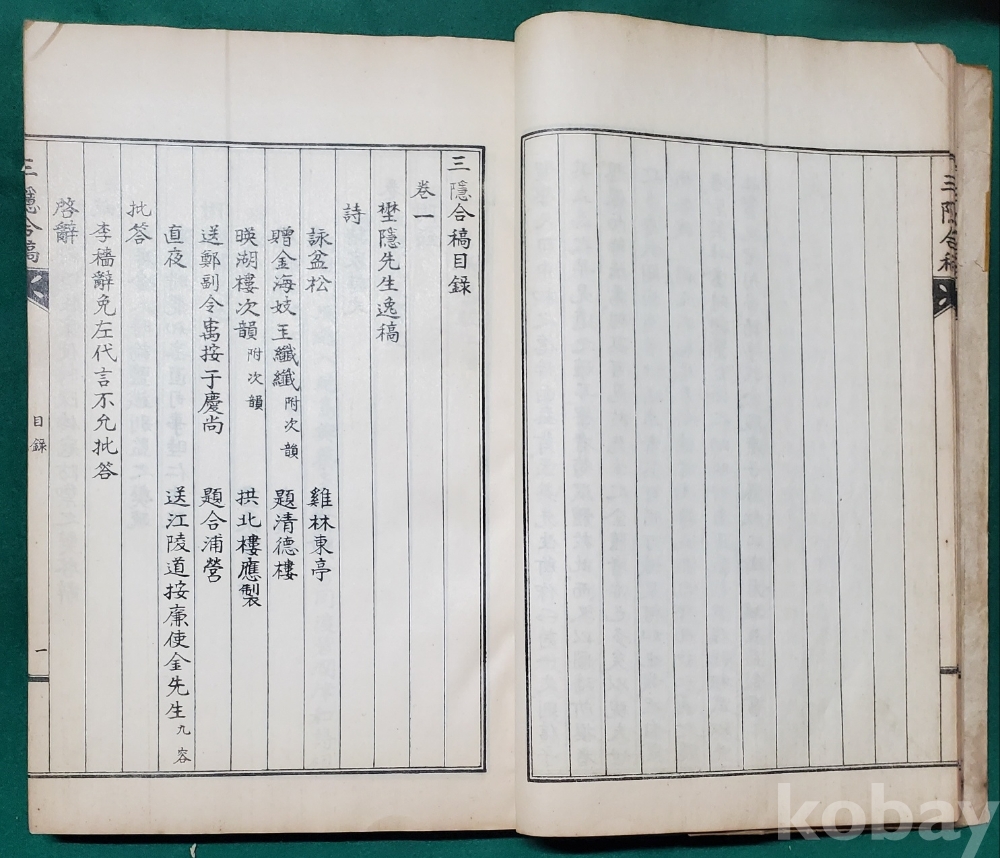 三隱合稿
三隱合稿目錄
卷一
樷隱先生逸稿
詩
詠盆松 雞林東亭
贈金海妓玉纖纖 附次韻 題清德樓
暎湖樓次韻 附次韻 拱北樓應製
送鄭副令㝢按于慶尚 題合浦營
直夜 送江陵道按廉使金先生 九容
批答
李穡辭免左代言不允批答
啓辭
三隱合稿
目錄
一
kobay